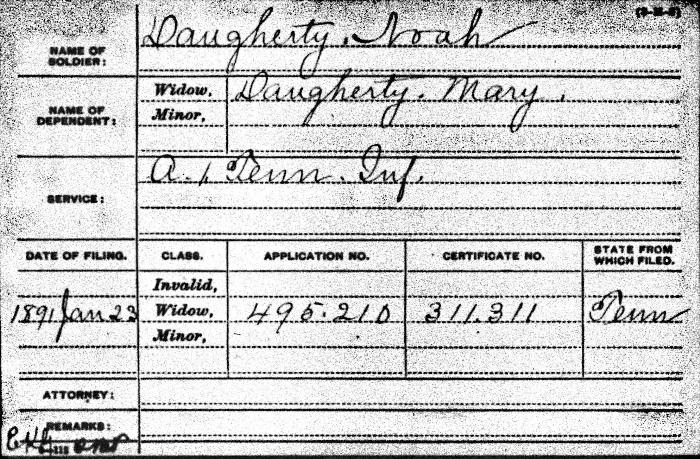 (3-M-6)
NAME OF SOLDIER: Daugherty, Noah
NAME OF DEPENDENT: Widow, Daugherty, Mary.
Minor,
SERVICE: A. 1 Tenn. Inf.
DATE OF FILING. CLASS. APPLICATION NO. CERTIFICATE NO. STATE FROM WHICH FILED.
Invalid,
1891 Jan 23 Widow, 495.210 311.311 Tenn
Minor,
ATTORNEY:
REMARKS: